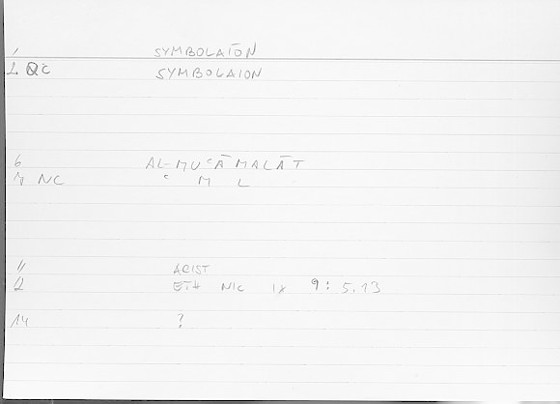 1 SYMBOLAÏON
2 QC SYMBOLAION
6 AL-MUʿĀMALĀT
7 NC ʿ M L
11 ARIST
12 ETH NIC IX 9: 5.13
14 ?